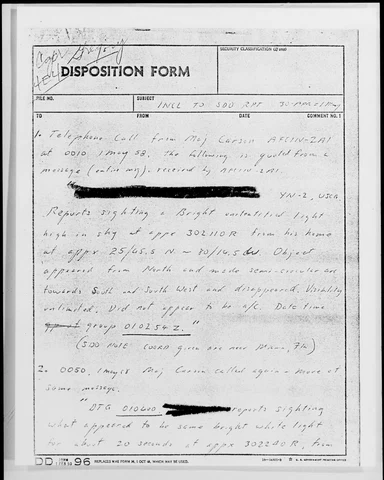 Copy
DISPOSITION FORM
SECURITY CLASSIFICATION (If any)
FILE NO.
SUBJECT
INCL TO SDO RPT 30 APR-01 May
TO
FROM
DATE
COMMENT NO. 1
1. Telephone Call from Maj Carson AFCIN-2A1
at 0010 1 May 58. The following is quoted from a
message (entire msg). received by AFCIN-2A1.
"
YN-2, USCG
Reports sighting a Bright unidentified light
high in sky at appx 302110R from his home
at appx 25/45.5 N - 80/14.5 W. Object
appeared from North and made semi-circular arc
towards South and South West and disappeared. Visibility
unlimited. Did not appear to be a/c. Date time
group 010254Z."
(SDO Note Coord given are near Miami, Fla)
2. 0050, 1 May 58 Maj Carson called again - more of
same message.
"DTG 010400 reports sighting
what appeared to be same bright white light
for about 20 seconds at appx 302240R, from
DD FORM 96
REPLACES NME FORM 96, 1 OCT 48, WHICH MAY BE USED.
U. S. GOVERNMENT PRINTING OFFICE